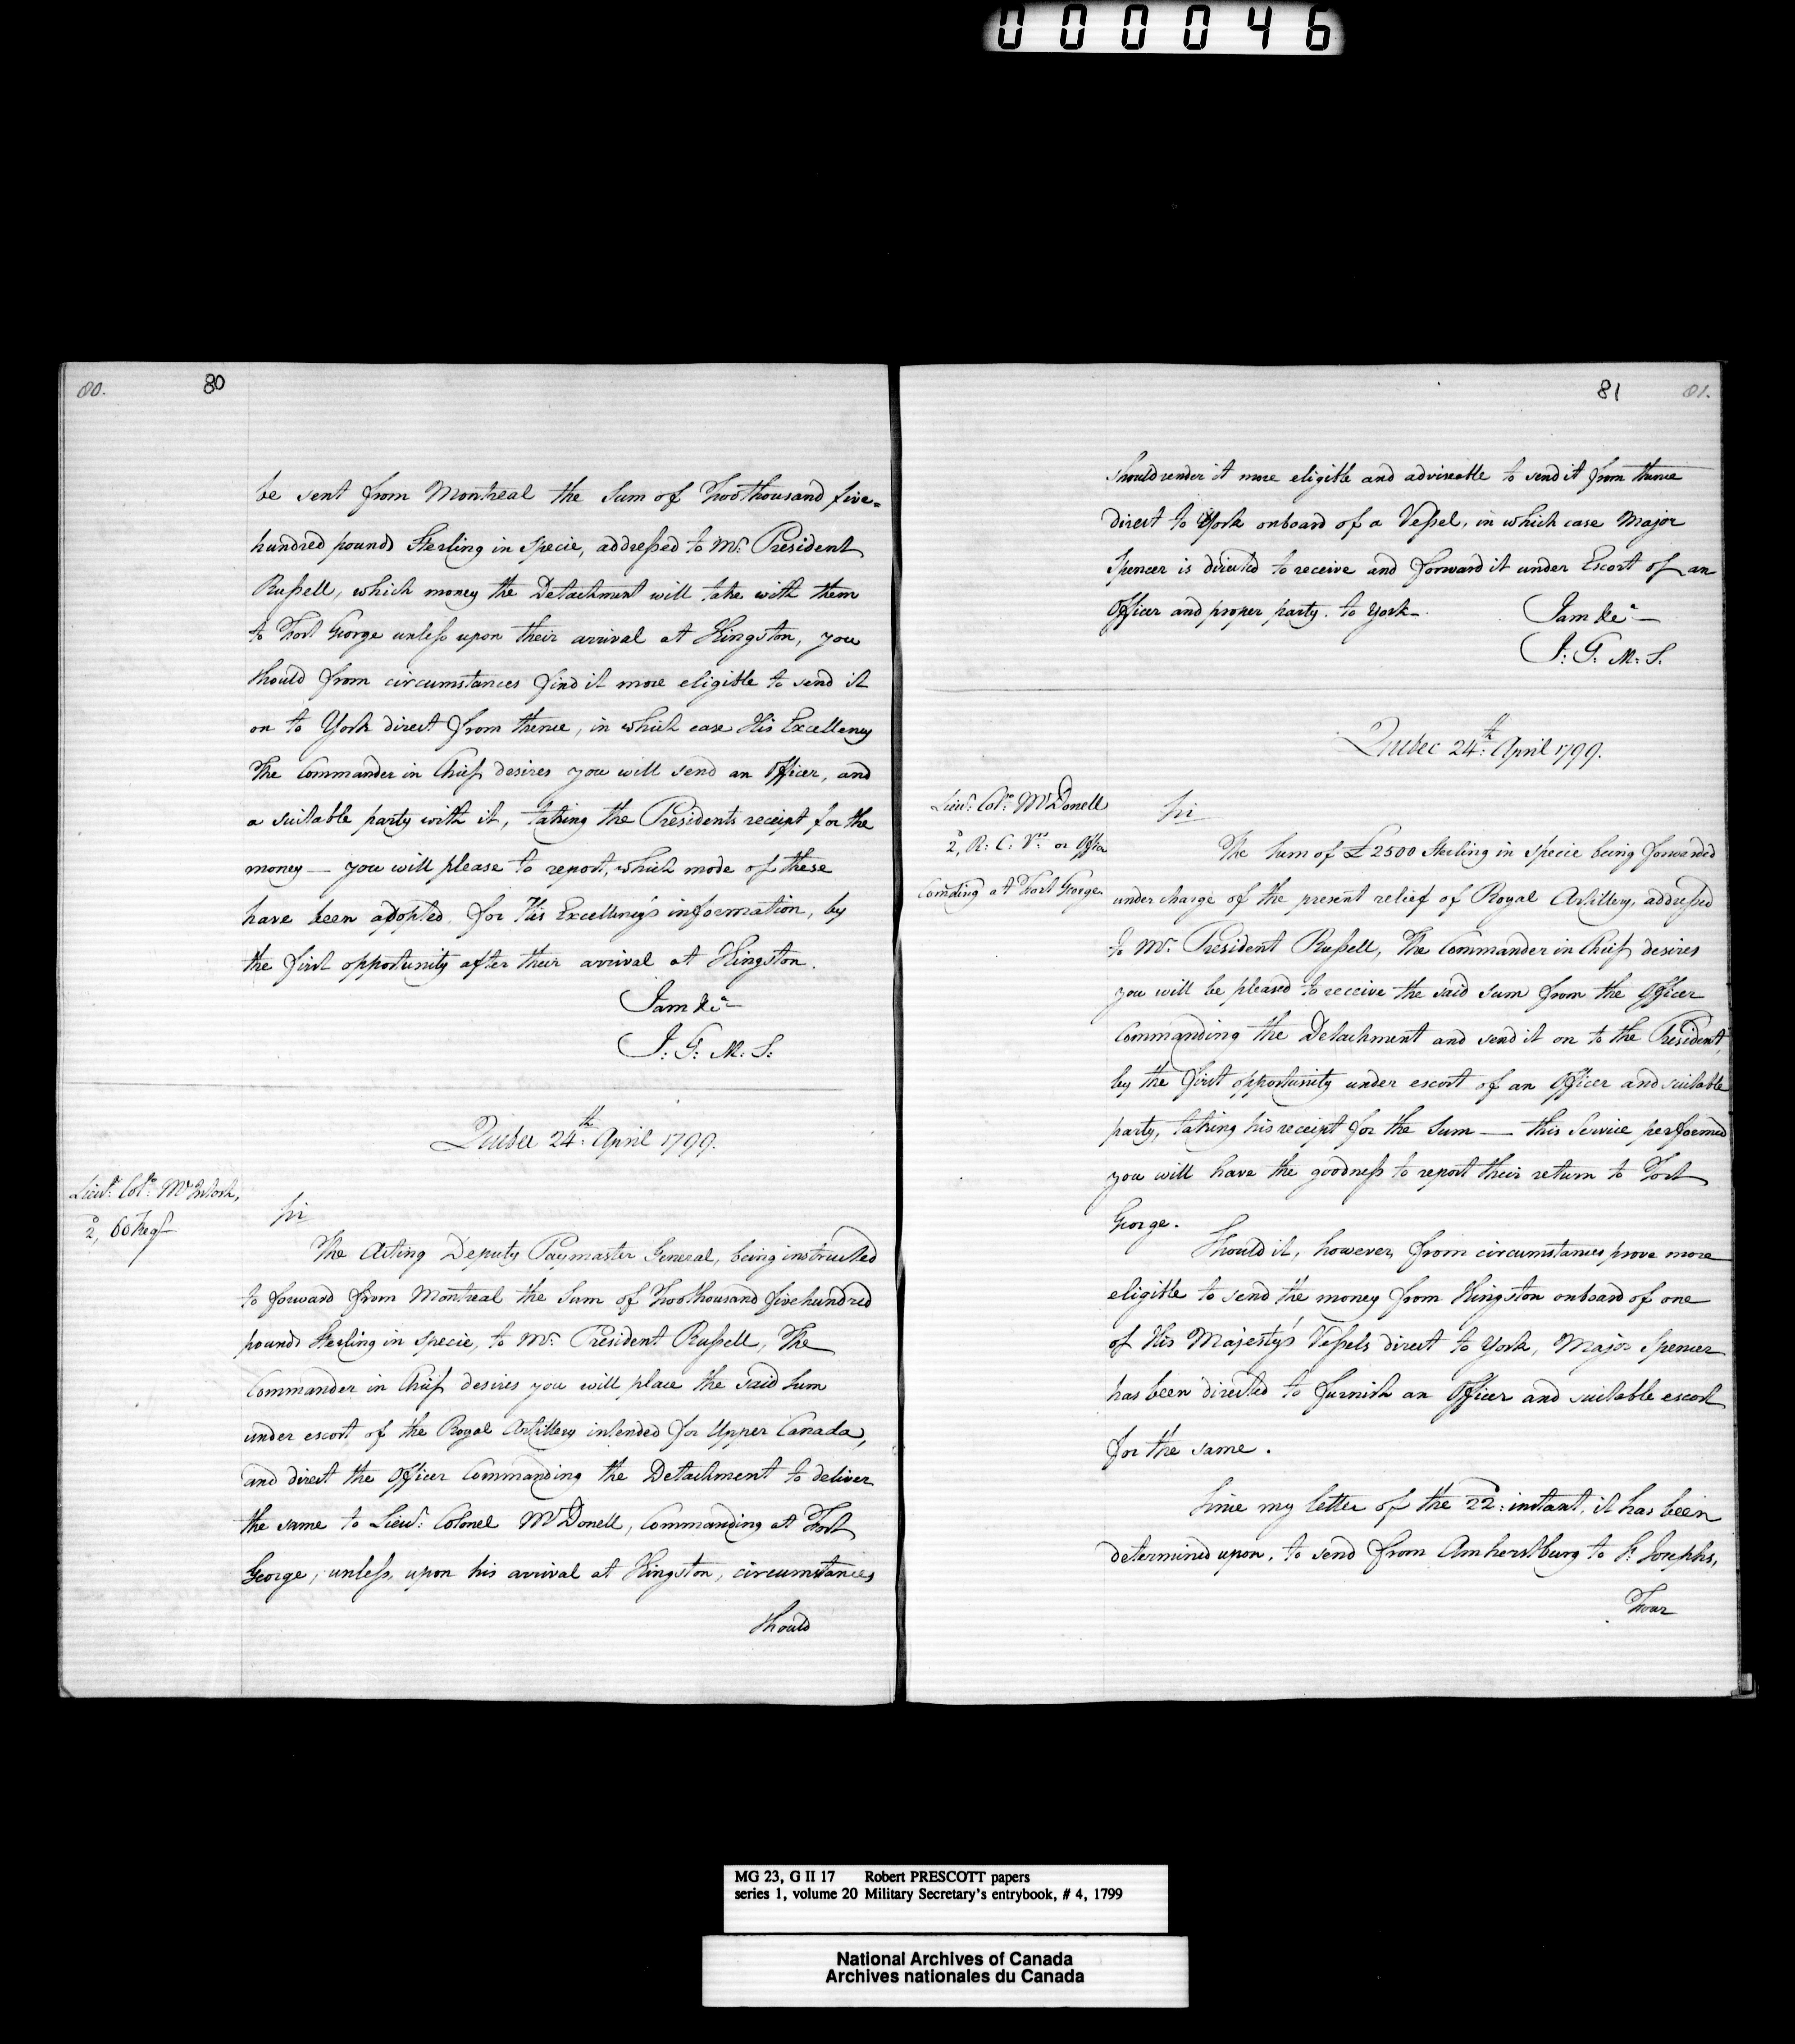 000046
80. 80
be sent from Montreal the Sum of Two thousand five=
hundred pounds Sterling in specie, addressed to Mr. President
Russell, which money the Detachment will take with them
to Fort George unless upon their arrival at Kingston, you
should from circumstances find it more eligible to send it
on to York direct from thence, in which case His Excellency
The Commander in Chief desires you will send an Officer, and
a suitable party with it, taking the Presidents receipt for the
money — you will please to report, which mode of these
have been adopted for His Excellency's information, by
the first opportunity after their arrival at Kingston.
I am &ca
J: G: M: S:
Quebec 24th: April 1799.
Lieut: Colo: McIntosh,
2, 60 Regt
Sir
The Acting Deputy Paymaster General, being instructed
to forward from Montreal the Sum of Two thousand five hundred
pounds Sterling in specie, to Mr. President Russell, The
Commander in Chief desires you will place the said Sum
under escort of the Royal Artillery intended for Upper Canada,
and direct the Officer Commanding the Detachment to deliver
the same to Lieut: Colonel McDonell, Commanding at Fort
George, unless, upon his arrival at Kingston, circumstances
should
81 81.
should render it more eligible and adviseable to send it from thence
direct to York onboard of a Vessel, in which case Major
Spencer is directed to receive and forward it under Escort of an
Officer and proper party. to York—
I am &ca —
J: G: M: S.
Quebec 24th: April 1799.
Lieut: Colo: McDonell
2, R: C: Vrs or Offer
Comding at Fort George
Sir
The Sum of £2500 Sterling in Specie being forwarded
under charge of the present relief of Royal Artillery, addressed
to Mr. President Russell, The Commander in Chief desires
you will be pleased to receive the said Sum from the Officer
Commanding the Detachment and send it on to the President,
by the first opportunity under escort of an Officer and suitable
party, taking his receipt for the Sum — this Service performed
you will have the goodness to report their return to Fort
George.
Should it, however, from circumstances prove more
eligible to send the money from Kingston onboard of one
of His Majesty's Vessels direct to York, Major Spencer
has been directed to furnish an Officer and suitable escort
for the same.
Since my letter of the 22d: instant, it has been
determined upon, to send from Amherstburg to St Josephs,
Four
MG 23, G II 17 Robert PRESCOTT papers
series 1, volume 20 Military Secretary's entrybook, # 4, 1799
National Archives of Canada
Archives nationales du Canada